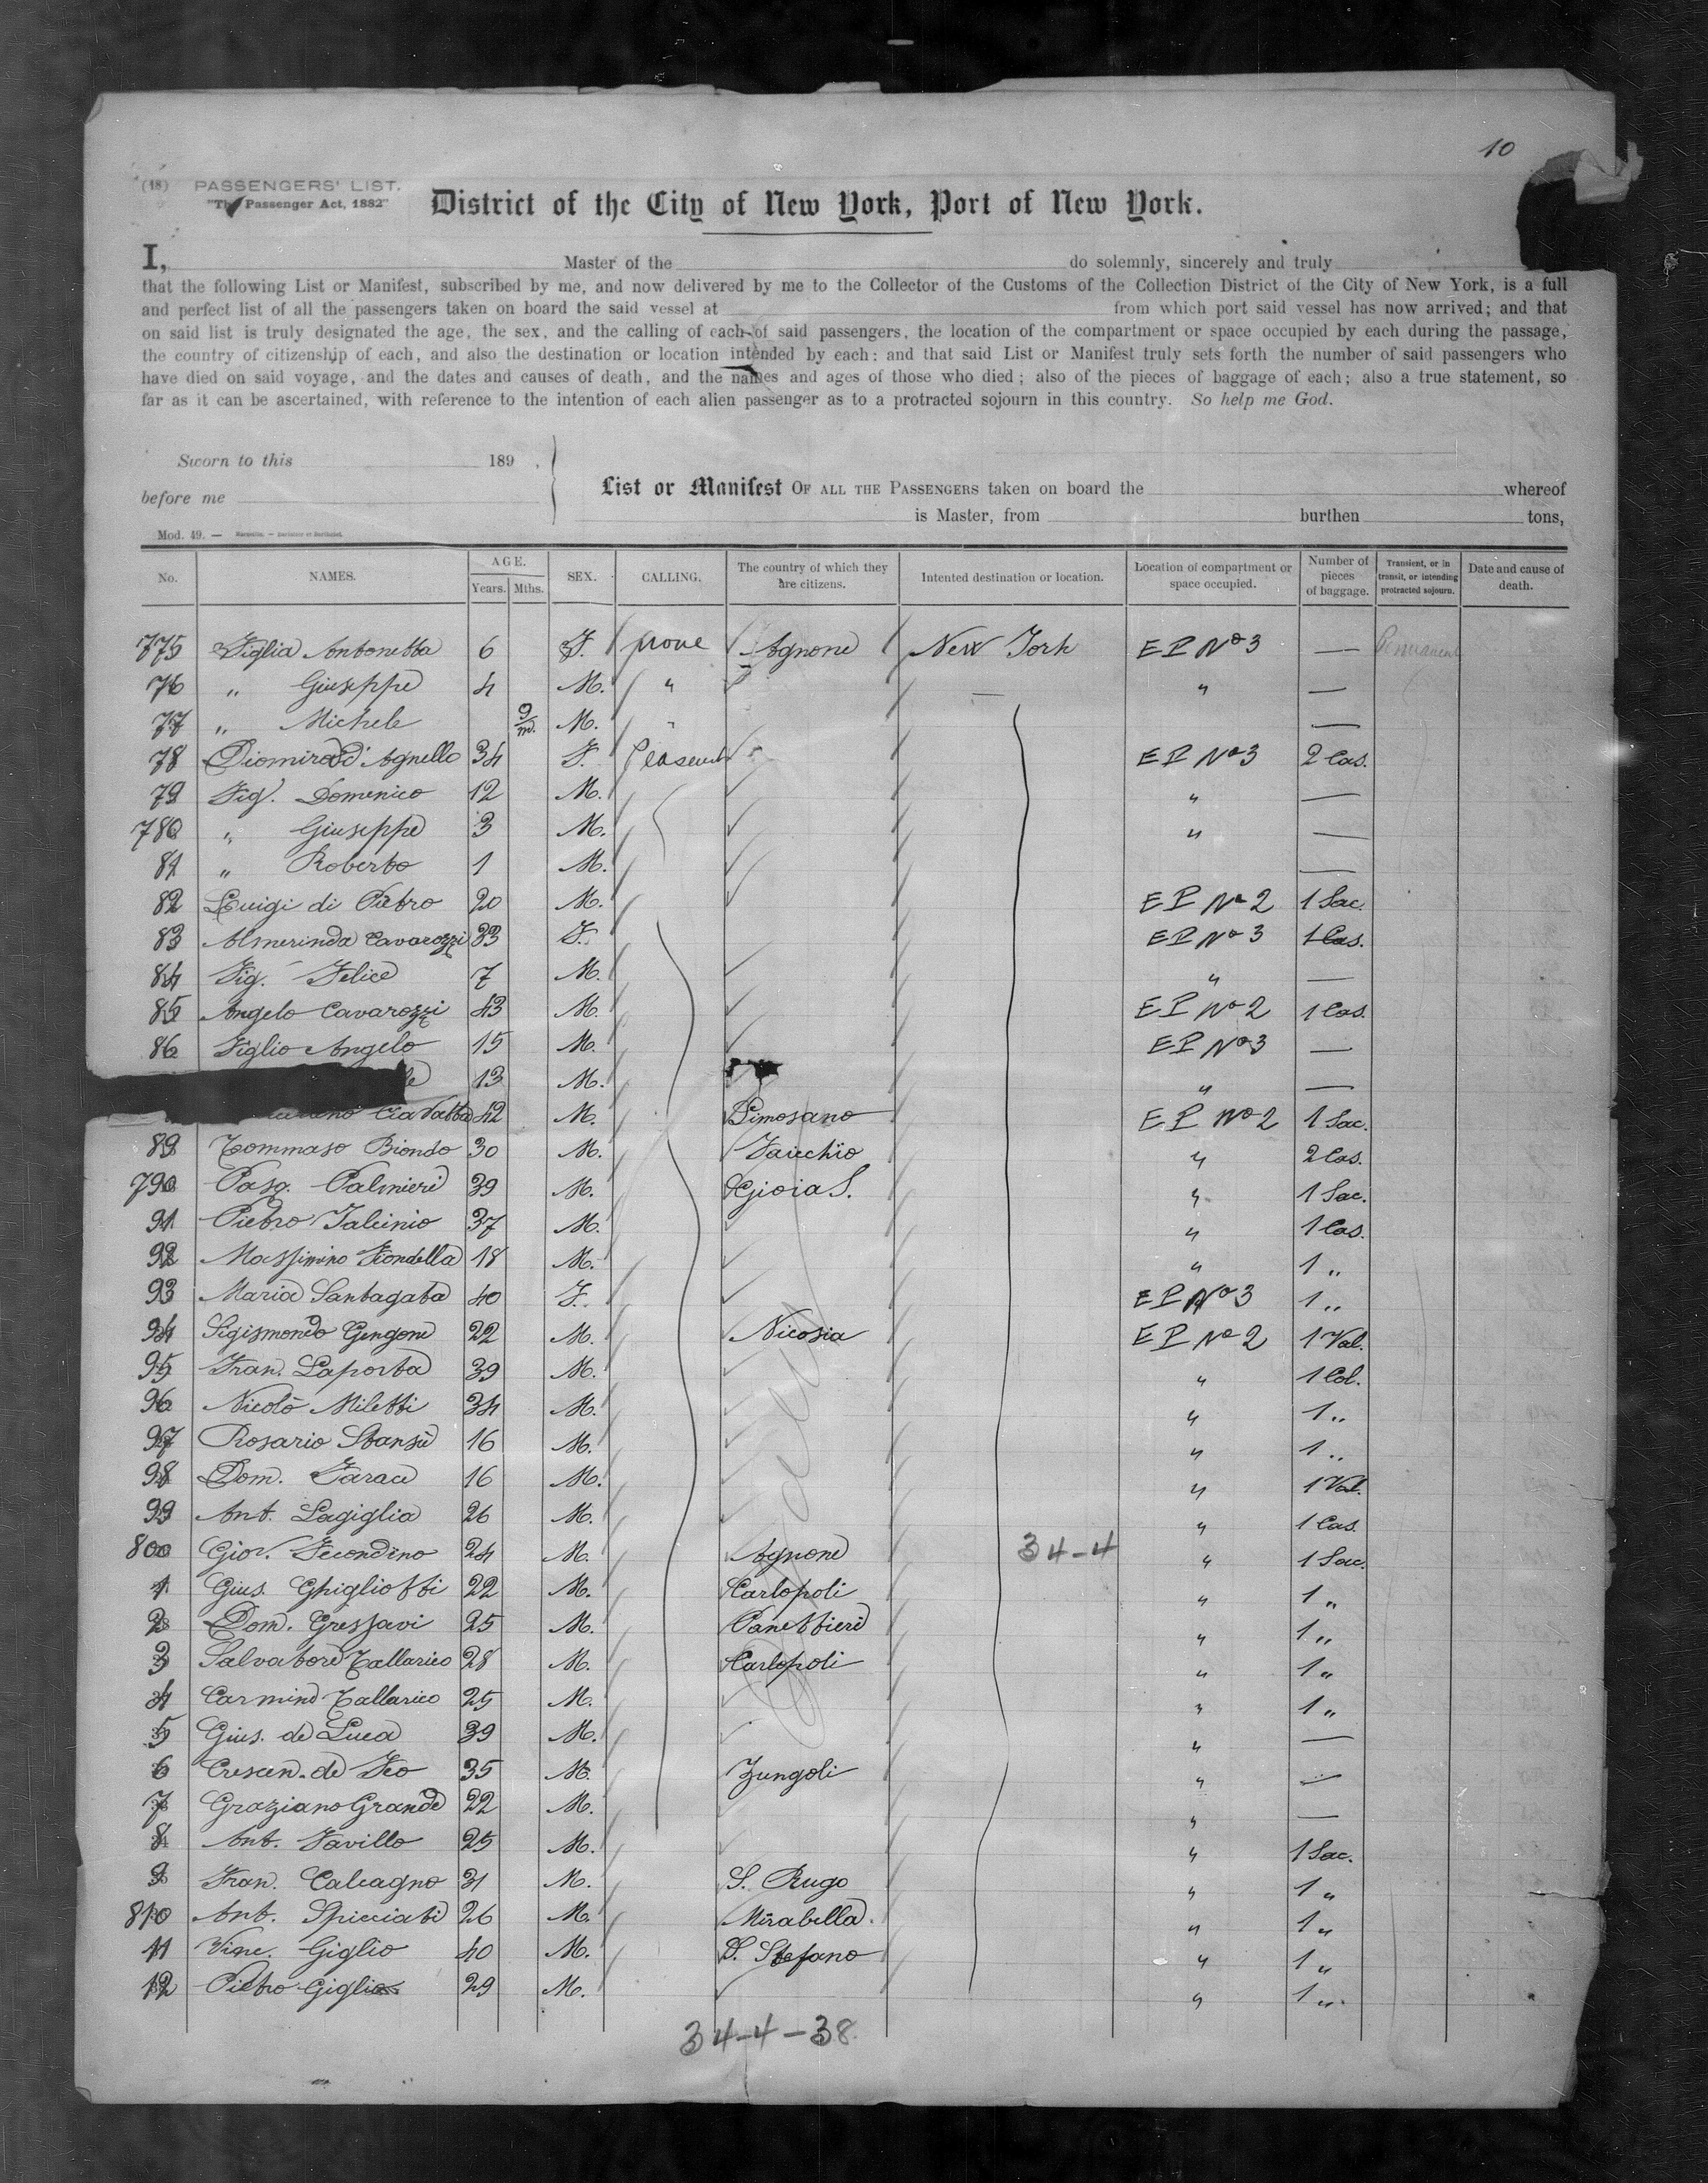 10
(18) PASSENGERS' LIST.
"The Passenger Act, 1882"
District of the City of New York, Port of New York.
I, Master of the do solemnly, sincerely and truly
that the following List or Manifest, subscribed by me, and now delivered by me to the Collector of the Customs of the Collection District of the City of New York, is a full
and perfect list of all the passengers taken on board the said vessel at from which port said vessel has now arrived; and that
on said list is truly designated the age, the sex, and the calling of each of said passengers, the location of the compartment or space occupied by each during the passage,
the country of citizenship of each, and also the destination or location intended by each: and that said List or Manifest truly sets forth the number of said passengers who
have died on said voyage, and the dates and causes of death, and the names and ages of those who died; also of the pieces of baggage of each; also a true statement, so
far as it can be ascertained, with reference to the intention of each alien passenger as to a protracted sojourn in this country. So help me God.
Sworn to this 189 ,
before me
List or Manifest OF ALL THE PASSENGERS taken on board the whereof
is Master, from burthen tons,
Mod. 49. —
No. NAMES. AGE. Years. Mths. SEX. CALLING. The country of which they are citizens. Intented destination or location. Location of compartment or space occupied. Number of pieces of baggage. Transient, or in transit, or intending protracted sojourn. Date and cause of death.
775 Figlia Antonetta 6 F. none Agnone New York E P No 3 — Permanent
76 " Giuseppe 4 M. " — " —
77 " Michele 9/m. M. " —
78 Diomira d'Agnello 34 F. E P No 3 2 Cas.
79 Fig. Domenico 12 M. " —
780 " Giuseppe 3 M. " —
81 " Roberto 1 M. —
82 Luigi di Pietro 20 M. E P No 2 1 Sac.
83 Almerinda Cavarozzi 33 F. E P No 3 1 Cas.
84 Fig. Felice 7 M. " —
85 Angelo Cavarozzi 43 M. E P No 2 1 Cas.
86 Figlio Angelo 15 M. E P No 3 —
13 M. " —
Ciavatta 42 M. Limosano E P No 2 1 Sac.
89 Tommaso Biondo 30 M. " 2 Cas.
790 Pasq. Palmieri 39 M. Gioia S. " 1 Sac.
91 Pietro 37 M. " 1 Cas.
92 Massimino Fiondella 18 M. " 1 "
93 Maria Santagata 40 F. E P No 3 1 "
94 Sigismondo Gengone 22 M. Nicosia E P No 2 1 Val.
95 Fran. Laporta 39 M. " 1 Col.
96 Nicolò Miletti 34 M. " 1 "
97 Rosario 16 M. " 1 "
98 Dom. Farace 16 M. " 1 Val.
99 Ant. Lagiglia 26 M. " 1 Cas.
800 Giov. Secondino 24 M. Agnone 34-4 " 1 Sac.
1 Gius. Ghigliotti 22 M. Carlopoli " 1 "
2 Dom. 25 M. Panettieri " 1 "
3 Salvatore Tallarico 28 M. Carlopoli " 1 "
4 Carmine Tallarico 25 M. " 1 "
5 Gius. de Luca 39 M. " —
6 Crescen. de Feo 35 M. Zungoli " —
7 Graziano Grande 22 M. " —
8 Ant. Favillo 25 M. " 1 Sac.
9 Fran. Calcagno 31 M. S. Rugo " 1 "
810 Ant. Spicciati 26 M. Mirabella. " 1 "
11 Vinc. Giglio 40 M. S. Stefano " 1 "
12 Pietro Giglio 29 M. " 1 "
34-4-38